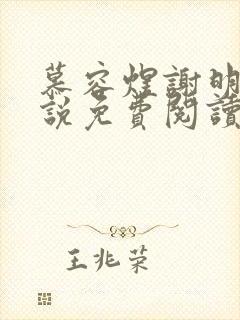 慕容煌謝明
說免費閱讀
王兆荣